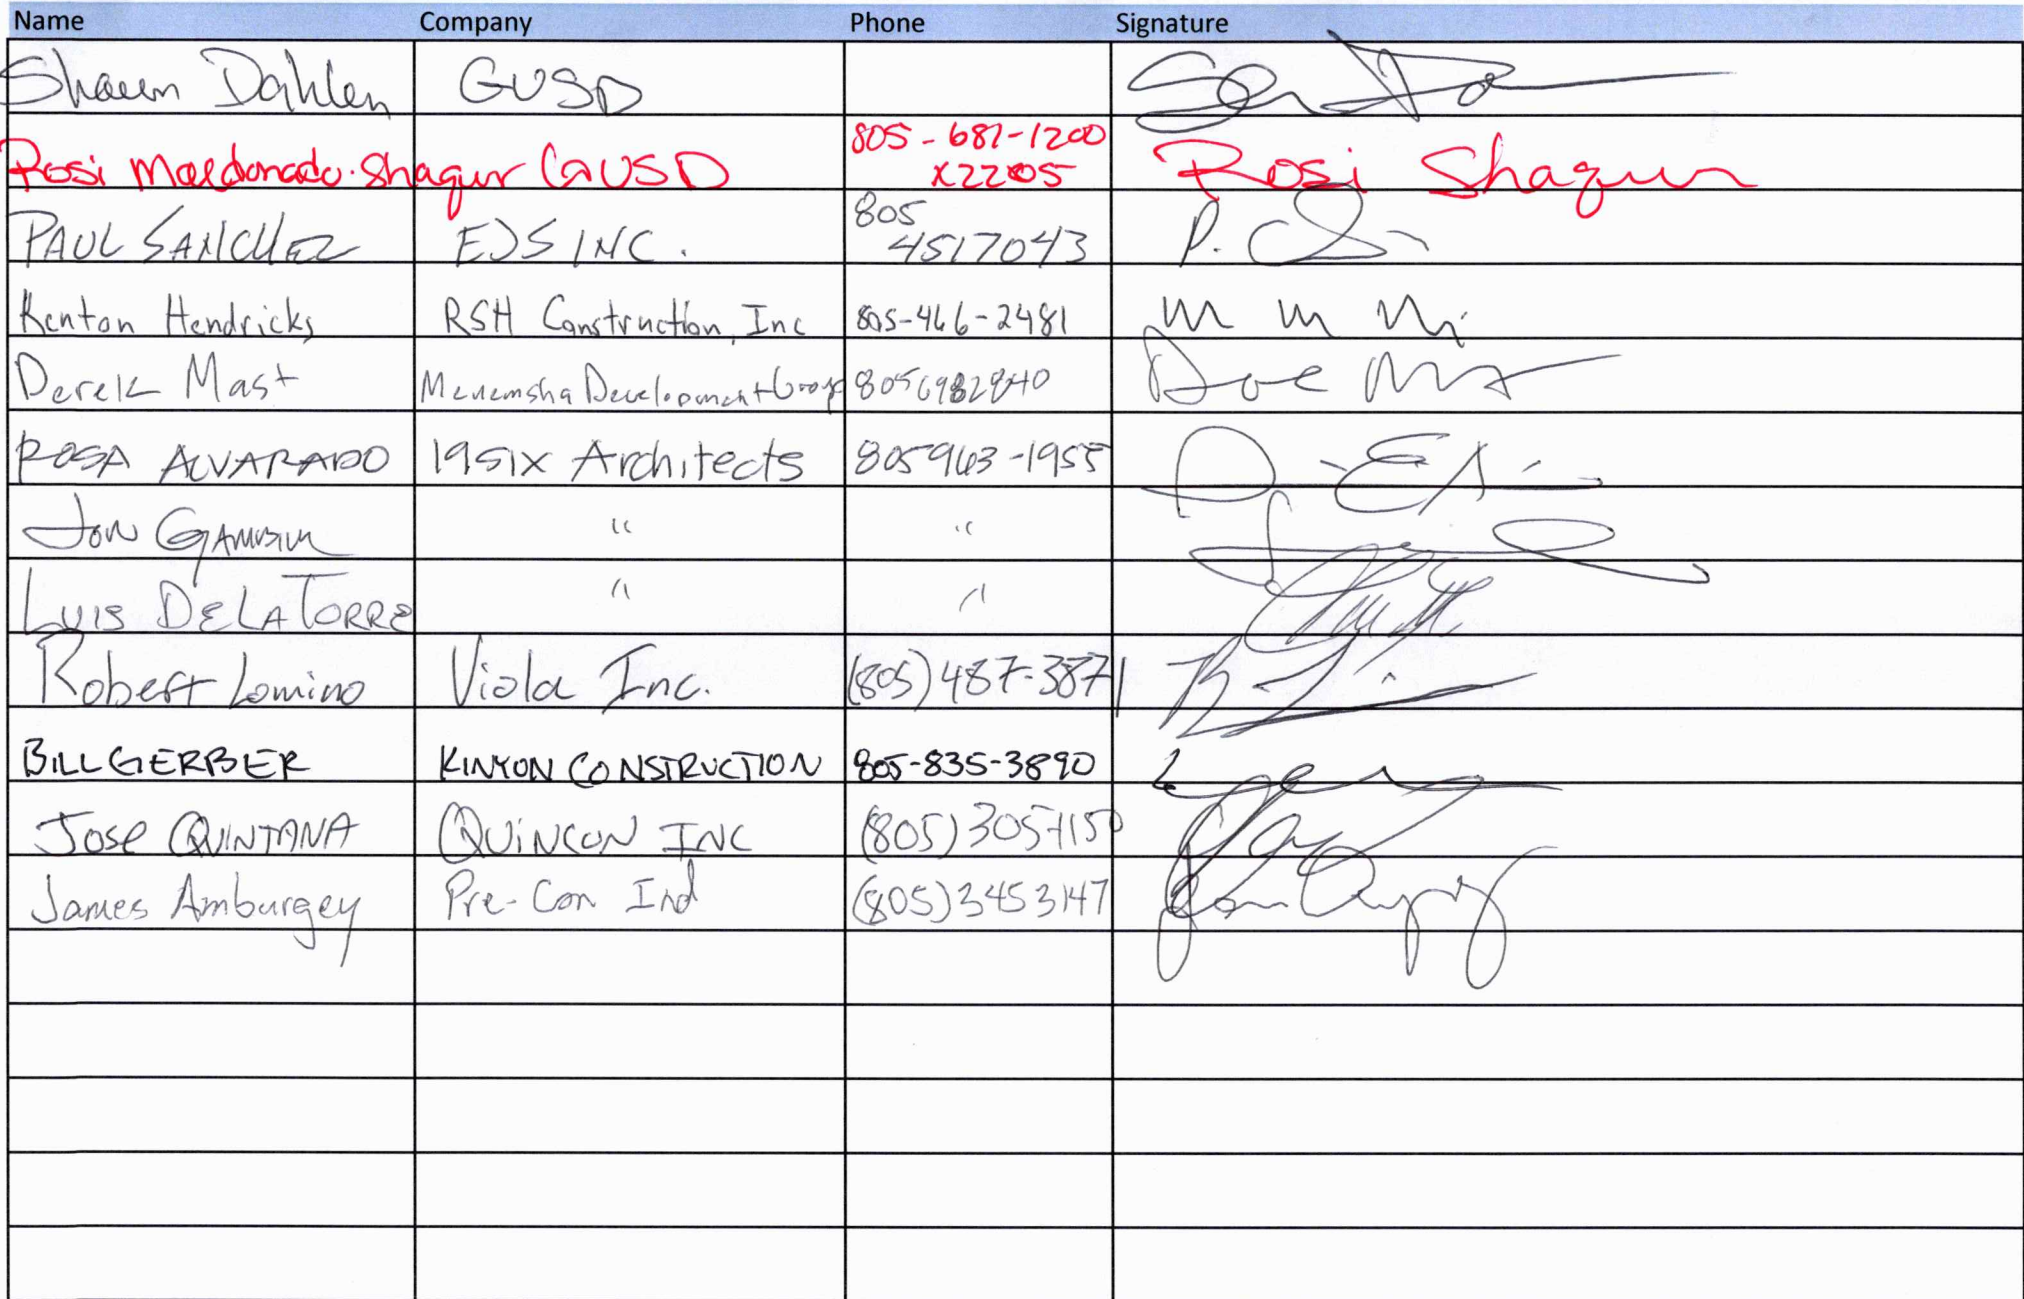 Name Company Phone Signature
Shawn Dahlen GUSD
Rosi Maldonado-Shaqur GUSD 805-681-1200
x2205 Rosi Shaqur
PAUL SANCHEZ EJS INC. 805
4517043
Kenton Hendricks RSH Construction, Inc 805-466-2481
Derek Mast Menemsha Development Group 8056982840
ROSA ALVARADO 19SIX Architects 805963-1955
JON " "
LUIS DELATORRE " "
Robert Lomino Viola Inc. (805)487-3871
BILL GERBER KINYON CONSTRUCTION 805-835-3890
JOSE QUINTANA QUINCON INC (805)3057150
James Amburgey Pre-Con Ind (805)3453147